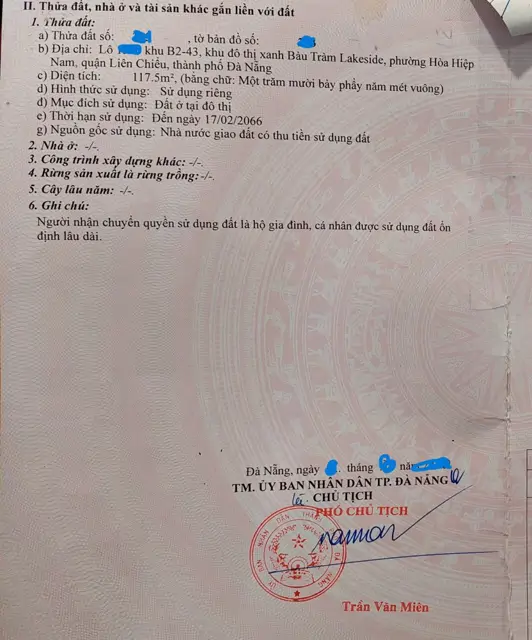 II. Thửa đất, nhà ở và tài sản khác gắn liền với đất
1. Thửa đất:
a) Thửa đất số: , tờ bản đồ số:
b) Địa chỉ: Lô khu B2-43, khu đô thị xanh Bàu Tràm Lakeside, phường Hòa Hiệp
Nam, quận Liên Chiểu, thành phố Đà Nẵng
c) Diện tích: 117.5m², (bằng chữ: Một trăm mười bảy phẩy năm mét vuông)
d) Hình thức sử dụng: Sử dụng riêng
đ) Mục đích sử dụng: Đất ở tại đô thị
e) Thời hạn sử dụng: Đến ngày 17/02/2066
g) Nguồn gốc sử dụng: Nhà nước giao đất có thu tiền sử dụng đất
2. Nhà ở: -/-.
3. Công trình xây dựng khác: -/-.
4. Rừng sản xuất là rừng trồng: -/-.
5. Cây lâu năm: -/-.
6. Ghi chú:
Người nhận chuyển quyền sử dụng đất là hộ gia đình, cá nhân được sử dụng đất ổn
định lâu dài.
Đà Nẵng, ngày tháng
TM. ỦY BAN NHÂN DÂN TP. ĐÀ NẴNG
CHỦ TỊCH
PHÓ CHỦ TỊCH
Trần Văn Miên